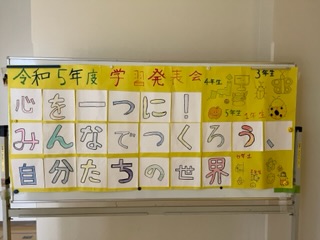 令和5年度 学習発表会
3年生
心を一つに!
みんなでつくろう、
自分たちの世界